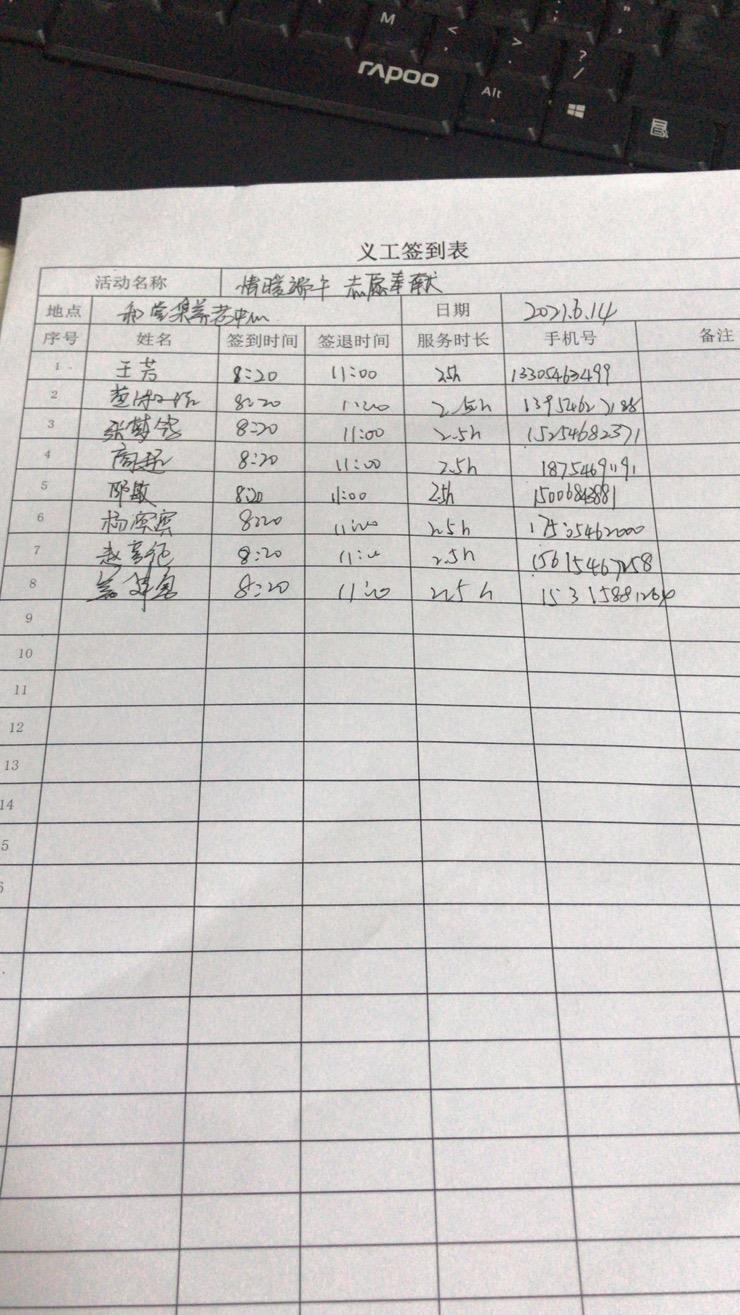 M
<
,
>
.
?
/
rapoo
Alt
义工签到表
活动名称 情暖端午 志愿奉献
地点 养老中心 日期 2021.6.14
序号 姓名 签到时间 签退时间 服务时长 手机号 备注
1 王芳 8:20 11:00 2.5h
2 8:20 11:00 2.5h
3 8:20 11:00 2.5h 15254682371
4 周超 8:20 11:00 2.5h
5 邵敏 8:20 11:00 2.5h
6 杨滨滨 8:20 11:00 2.5h 17505462000
7 8:20 11:00 2.5h
8 8:20 11:00 2.5h
9
10
11
12
13
14
5